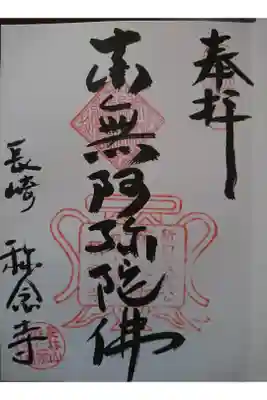 奉拝
南無阿弥陀佛
長崎 称念寺